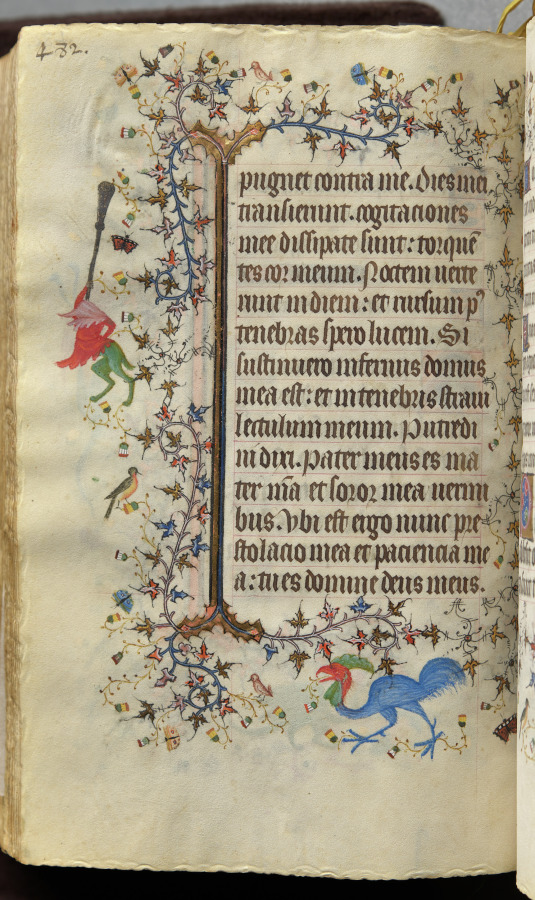 432.
pugnet contra me. Dies mei
transierunt. cogitaciones
mee dissipate sunt: torquē
tes cor meum. Noctem uerte
runt in diem: et rursum p᷒
tenebras spero lucem. Si
sustinuero infernus domus
mea est: et in tenebris straui
lectulum meum. Putredi
ni dixi. Pater meus es ma
ter m̄a et soror mea uermi
bus. Vbi est ergo nunc pre
stolacio mea et paciencia me
a: tu es domine deus meus.